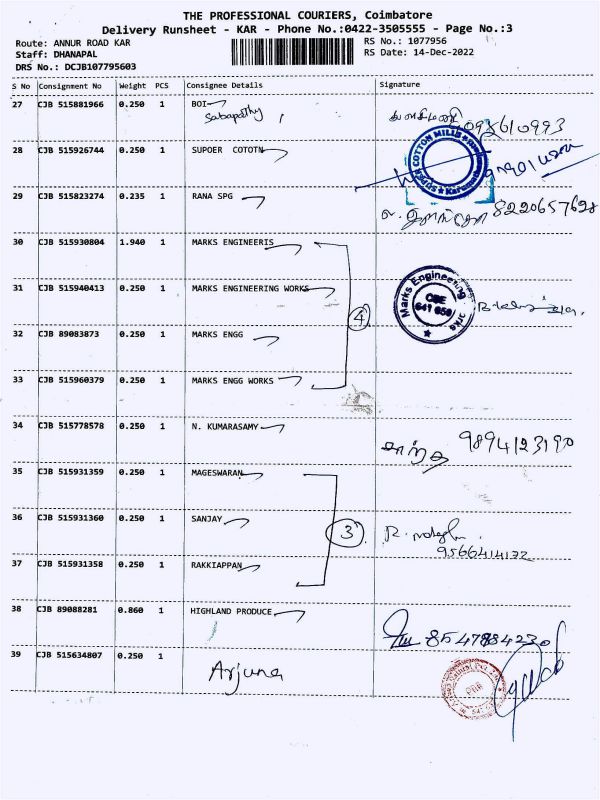 THE PROFESSIONAL COURIERS, Coimbatore
Delivery Runsheet - KAR - Phone No.:0422-3505555 - Page No.:3
Route: ANNUR ROAD KAR
RS No.: 1077956
Staff: DHANAPAL
RS Date: 14-Dec-2022
DRS No.: DCJB107795603
S No Consignment No Weight PCS Consignee Details Signature
27 CJB 515881966 0.250 1 BOI
Sabapathy
28 CJB 515926744 0.250 1 SUPOER COTOTN
COTTON MILLS
29 CJB 515823274 0.235 1 RANA SPG
8220657628
30 CJB 515930804 1.940 1 MARKS ENGINEERIS
31 CJB 515940413 0.250 1 MARKS ENGINEERING WORKS
4
Marks Engineering Works
CBE
641 659
32 CJB 89083873 0.250 1 MARKS ENGG
33 CJB 515960379 0.250 1 MARKS ENGG WORKS
34 CJB 515778578 0.250 1 N. KUMARASAMY
9894123190
35 CJB 515931359 0.250 1 MAGESWARAN
36 CJB 515931360 0.250 1 SANJAY
3
9566414132
37 CJB 515931358 0.250 1 RAKKIAPPAN
38 CJB 89088281 0.860 1 HIGHLAND PRODUCE
8547884230
39 CJB 515634807 0.250 1
Arjuna